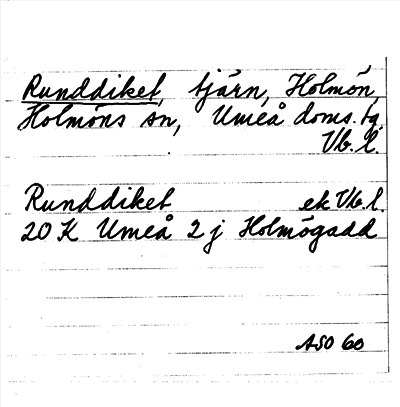 Runddiket, tjärn, Holmön,
Holmöns sn, Umeå doms. tg.
Vb. l.
Runddiket ek Vb. l.
20 K Umeå 2 j Holmögadd
ASO 60